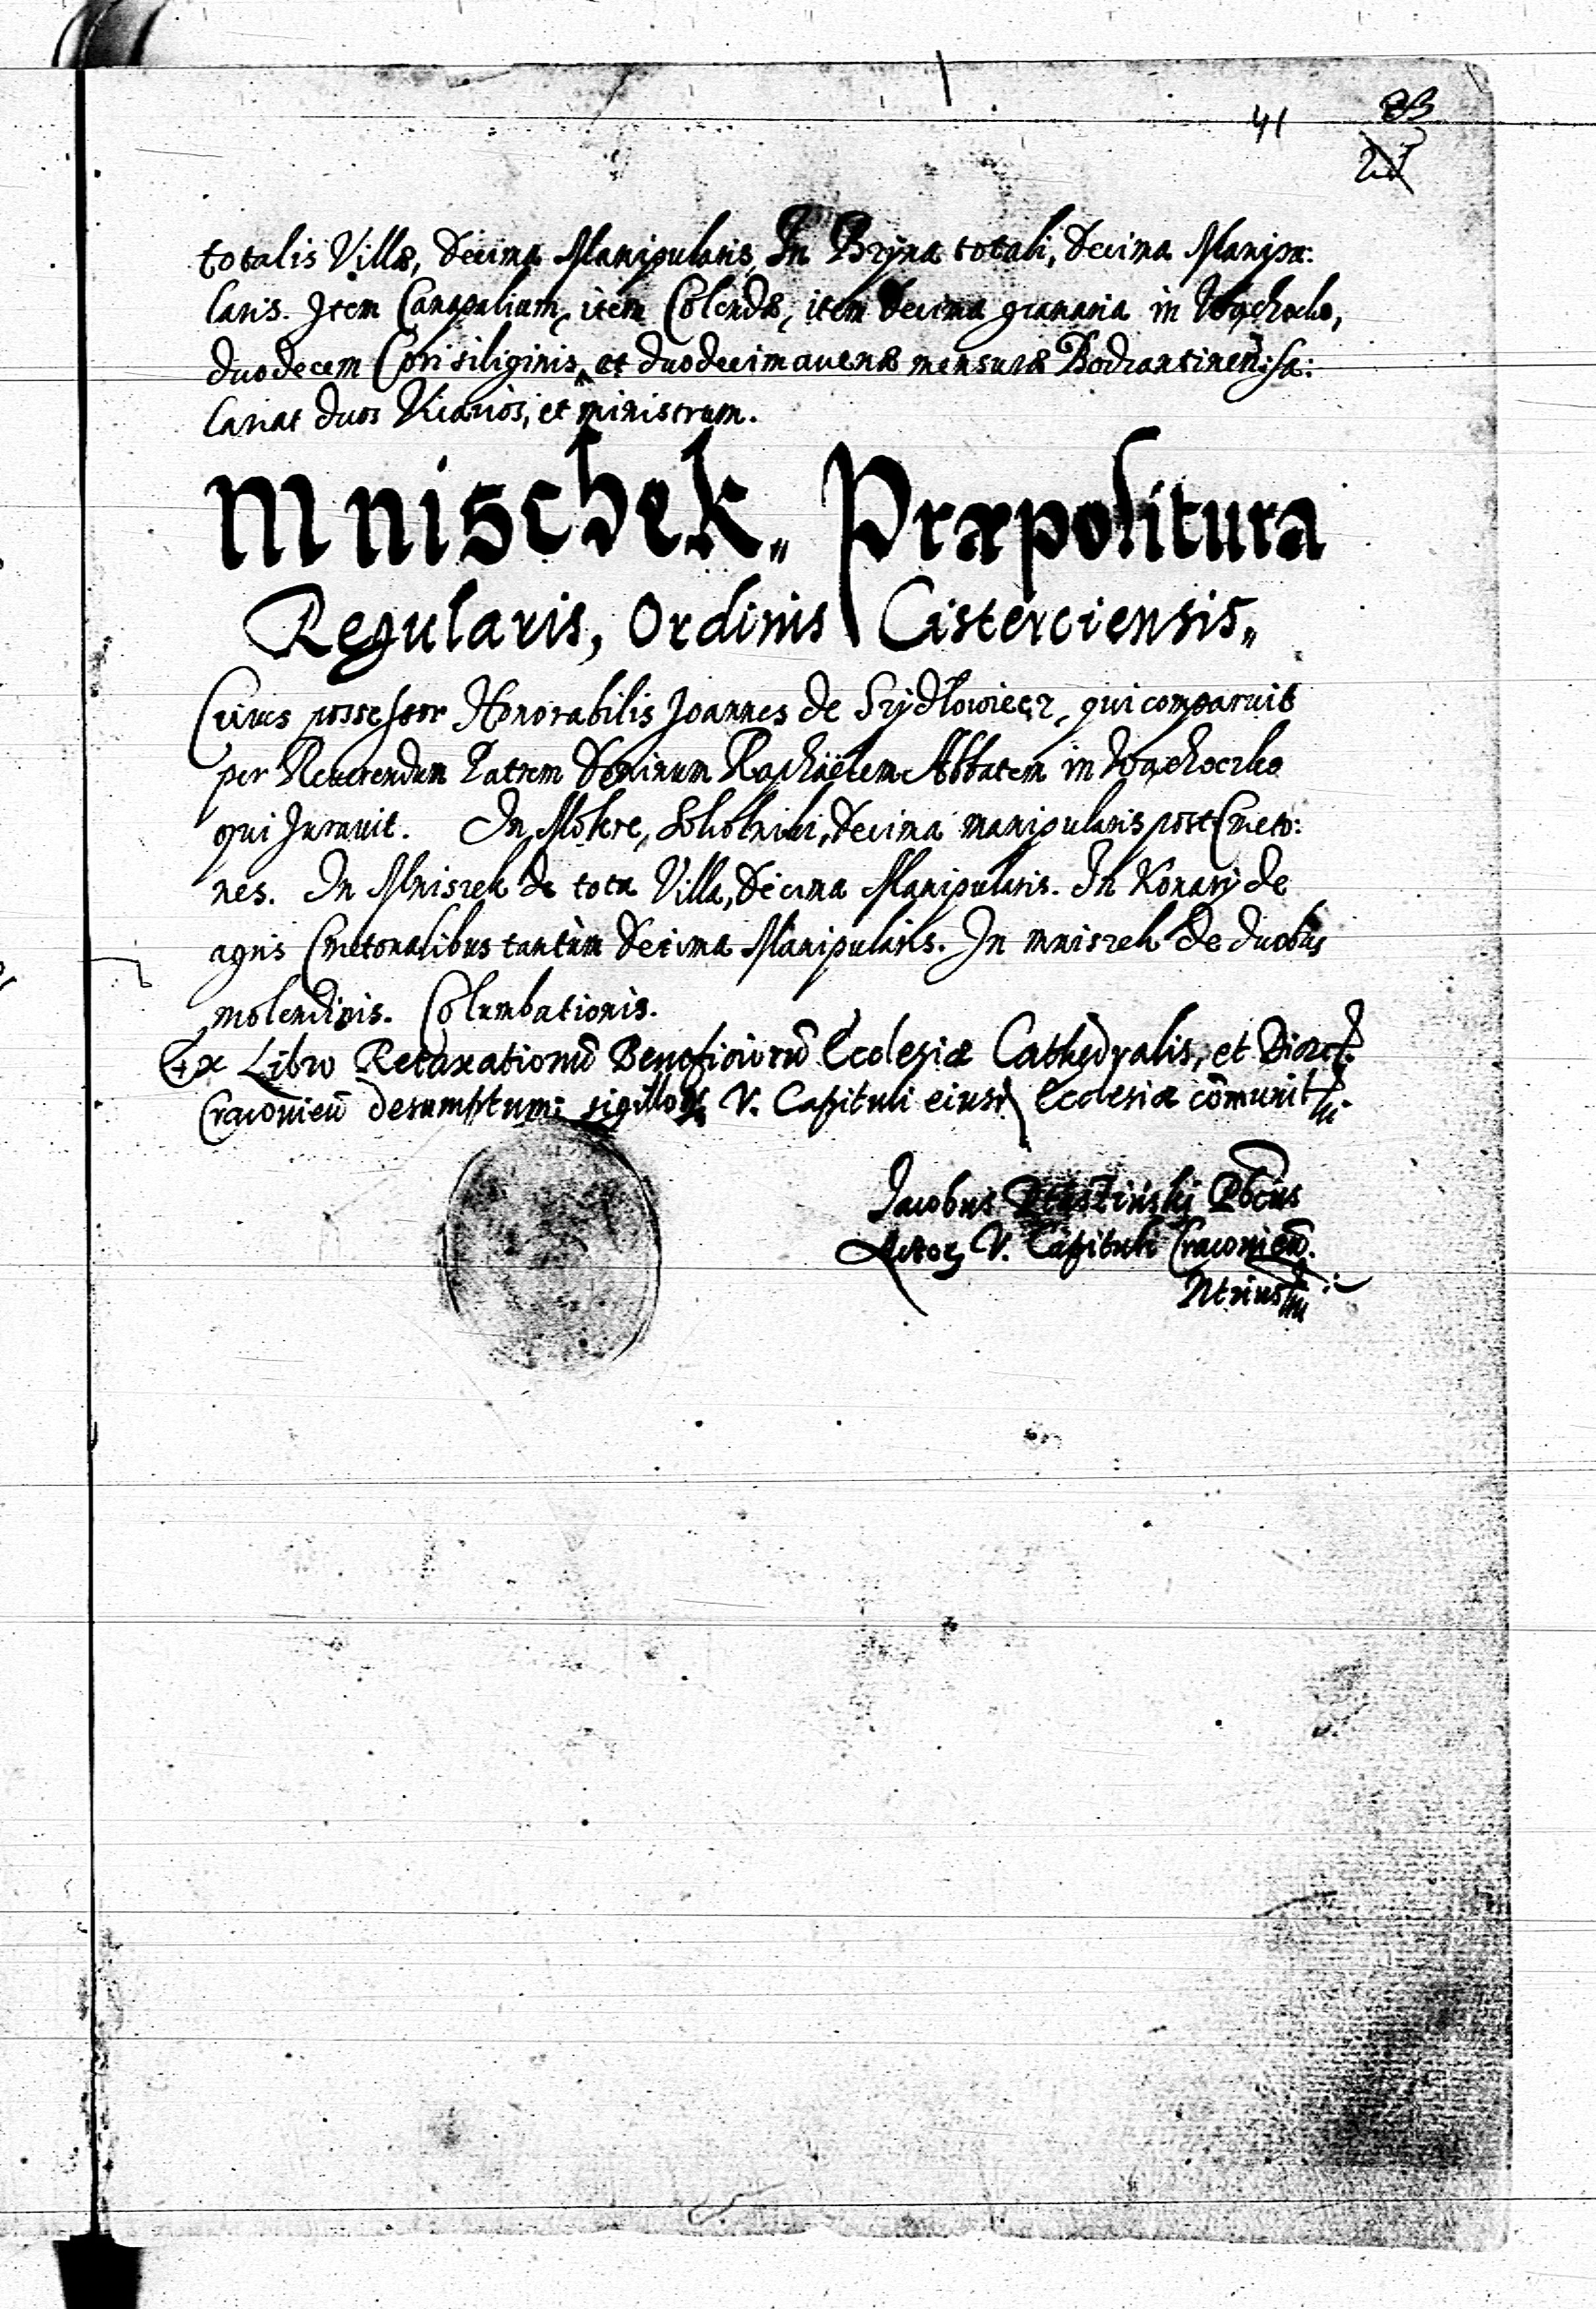 41
totalis Villæ, Decima Manipularis, In Bzÿna totali, Decima Manipu:
laris. Item Canapalium, item Colendæ, item Decima granaria in Wąchocko,
duodecem Cori siliginis, et duodecim auenæ mensuræ Bodzantinen: sa:
lariat duos Vicarios, et ministrum.
Mnischek. Præpositura
Regularis, Ordinis Cisterciensis„
Cuius possessor Honorabilis Joannes de Szÿdłowiecz, qui comparuit
per Reuerendum Patrem Dominum Raphäelem Abbatem in Wąchoczko
qui Jurauit. In Mokre, Sokolniki, Decima manipularis post Cmeto:
nes. In Mniszek de tota Villa, Decima Manipularis. In Konarÿ de
agris Cmetonalibus tantùm Decima Manipularis. In mniszek de duobus
molendinis. Columbationis.
Ex Libro Retaxationū Beneficiorū Ecclesiæ Cathedralis, et Diœc:
Cracouien̄ desumptum: sigilloq; V. Capituli eiusd Ecclesiæ cōmunit
Jacobus Pbr̄us
Actor, V. Capituli Cracouien̄.
Ntrius